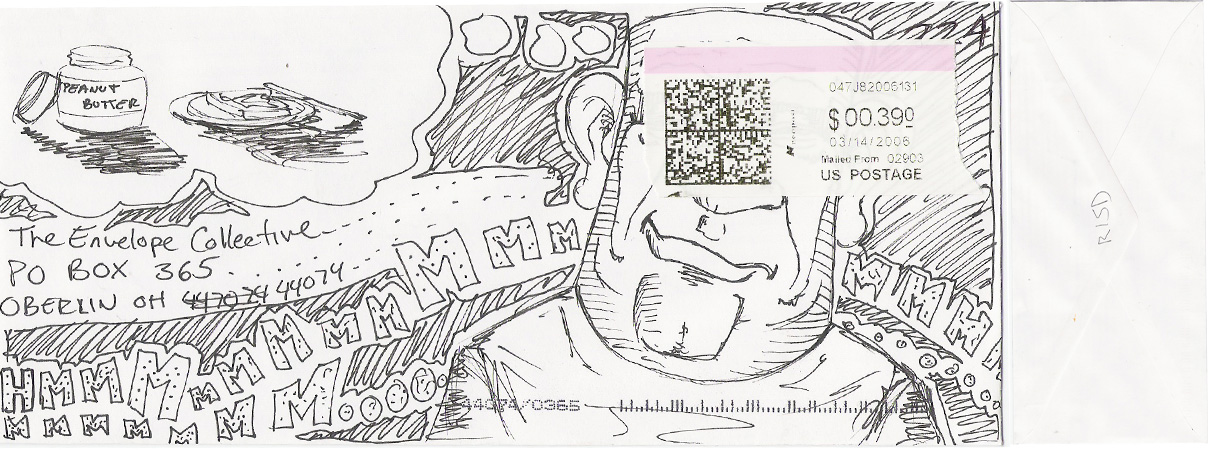 PEANUT
BUTTER
047J82006131
$00.390
03/14/2006
Mailed From 02903
US POSTAGE
The Envelope Collective
PO BOX 365
OBERLIN OH 447074 44074
MMM
MMMM
MMMMM
HMMMMMMM
MMMMMMM
44074/0365
RISD